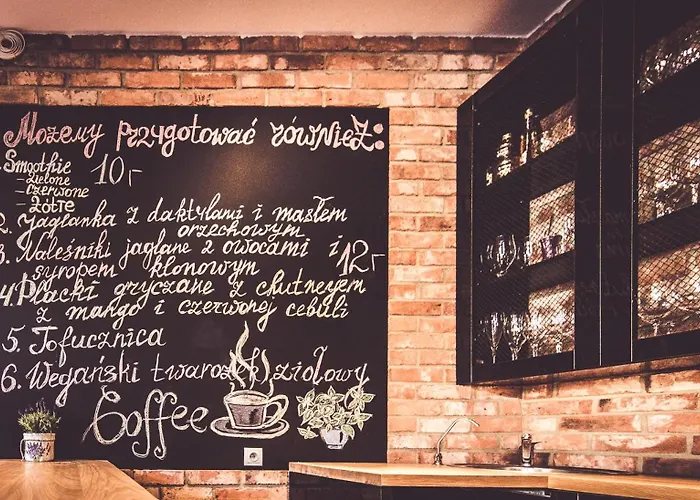 Możemy przygotować również:
1. Smoothie 10,-
- zielone
- czerwone
- żółte
2. Jaglanka z daktylami i masłem
orzechowym
3. Naleśniki jaglane z owocami i
syropem klonowym 12,-
4. Placki gryczane z chutneyem
z mango i czerwonej cebuli
5. Tofucznica
6. Wegański twarożek ziołowy
Coffee